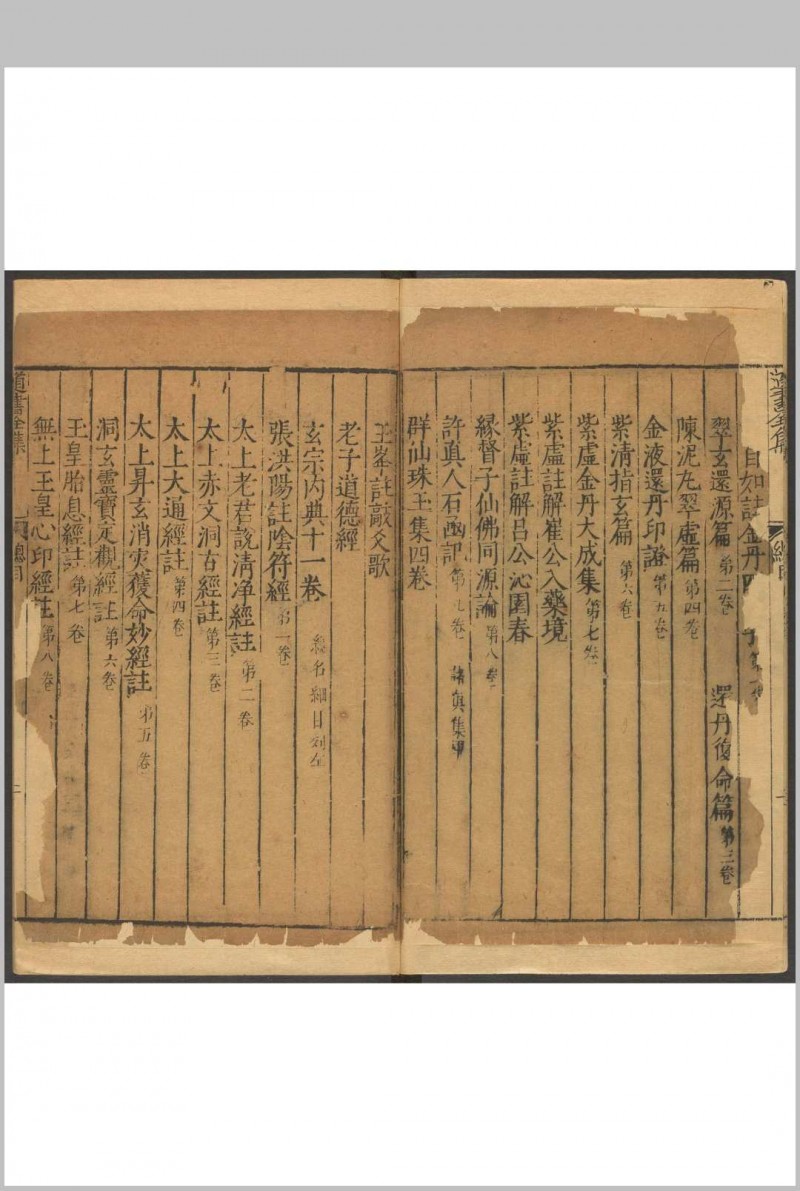 道書全集
自如註金丹四
翠玄還源篇 第二卷 還丹復命篇 第三卷
陳泥丸翠虛篇 第四卷
金液還丹印證 第五卷
紫清指玄篇 第六卷
紫虛金丹大成集 第七卷
紫虛註解崔公入藥境
紫虛註解呂公沁園春
緣督子仙佛同源論 第八卷
許真人石函記 第九卷 諸真集甲
群仙珠玉集四卷
玉峯註敲爻歌
老子道德經
玄宗內典十一卷 總名細目列左
張洪陽註陰符經 第一卷
太上老君說清净經註 第二卷
太上赤文洞古經註 第三卷
太上大通經註 第四卷
太上昇玄消災獲命妙經註 第五卷
洞玄靈寶定觀經註 第六卷
玉皇胎息經註 第七卷
無上玉皇心印經註 第八卷
道書全集 總目